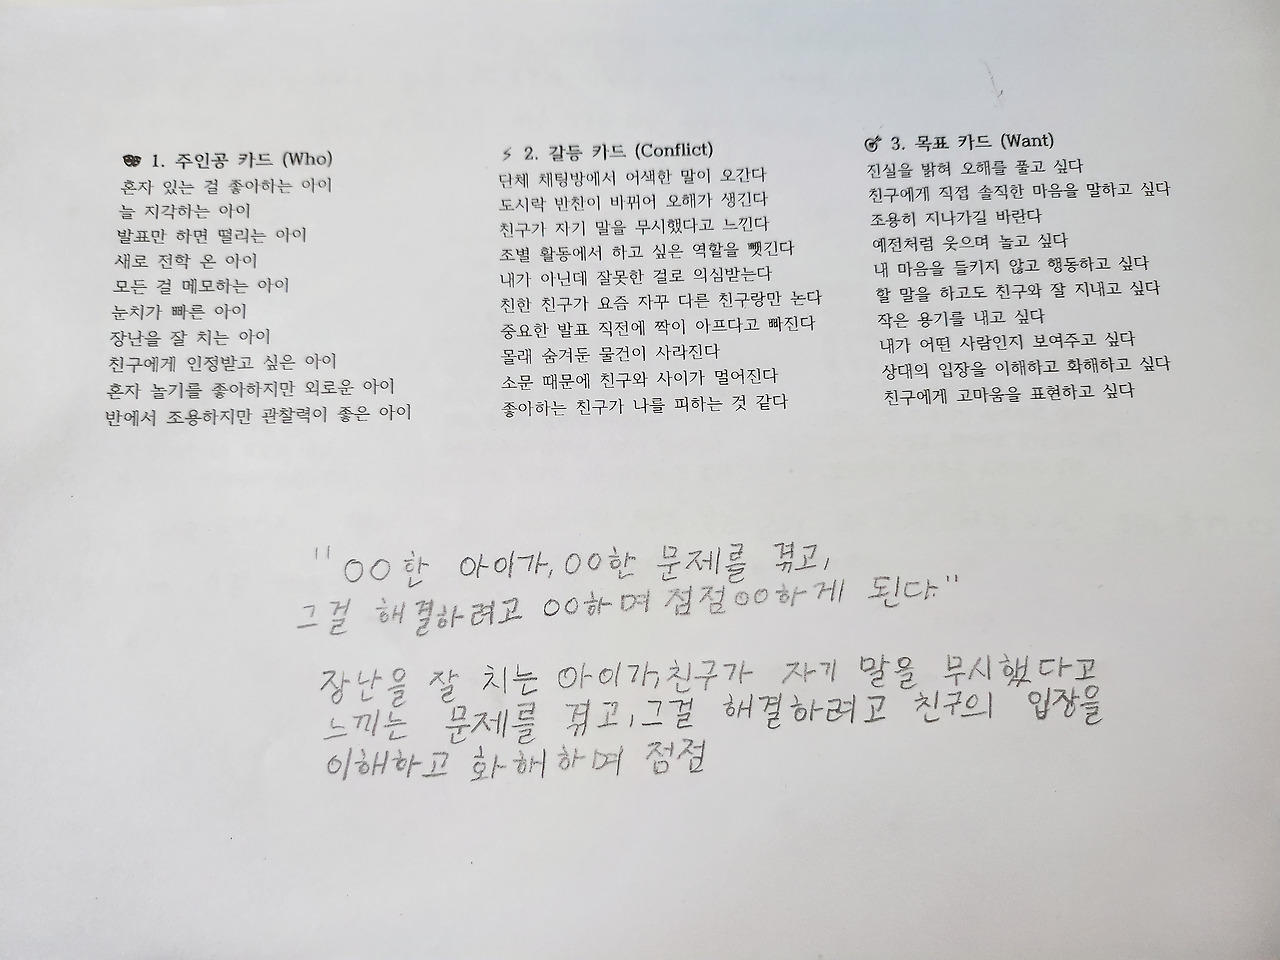 1. 주인공 카드 (Who)
혼자 있는 걸 좋아하는 아이
늘 지각하는 아이
발표만 하면 떨리는 아이
새로 전학 온 아이
모든 걸 메모하는 아이
눈치가 빠른 아이
장난을 잘 치는 아이
친구에게 인정받고 싶은 아이
혼자 놀기를 좋아하지만 외로운 아이
반에서 조용하지만 관찰력이 좋은 아이
⚡ 2. 갈등 카드 (Conflict)
단체 채팅방에서 어색한 말이 오간다
도시락 반찬이 바뀌어 오해가 생긴다
친구가 자기 말을 무시했다고 느낀다
조별 활동에서 하고 싶은 역할을 뺏긴다
내가 아닌데 잘못한 걸로 의심받는다
친한 친구가 요즘 자꾸 다른 친구랑만 논다
중요한 발표 직전에 짝이 아프다고 빠진다
몰래 숨겨둔 물건이 사라진다
소문 때문에 친구와 사이가 멀어진다
좋아하는 친구가 나를 피하는 것 같다
3. 목표 카드 (Want)
진실을 밝혀 오해를 풀고 싶다
친구에게 직접 솔직한 마음을 말하고 싶다
조용히 지나가길 바란다
예전처럼 웃으며 놀고 싶다
내 마음을 들키지 않고 행동하고 싶다
할 말을 하고도 친구와 잘 지내고 싶다
작은 용기를 내고 싶다
내가 어떤 사람인지 보여주고 싶다
상대의 입장을 이해하고 화해하고 싶다
친구에게 고마움을 표현하고 싶다
"OO한 아이가, OO한 문제를 겪고,
그걸 해결하려고 OO하며 점점 OO하게 된다."
장난을 잘 치는 아이가, 친구가 자기 말을 무시했다고
느끼는 문제를 겪고, 그걸 해결하려고 친구의 입장을
이해하고 화해하며 점점